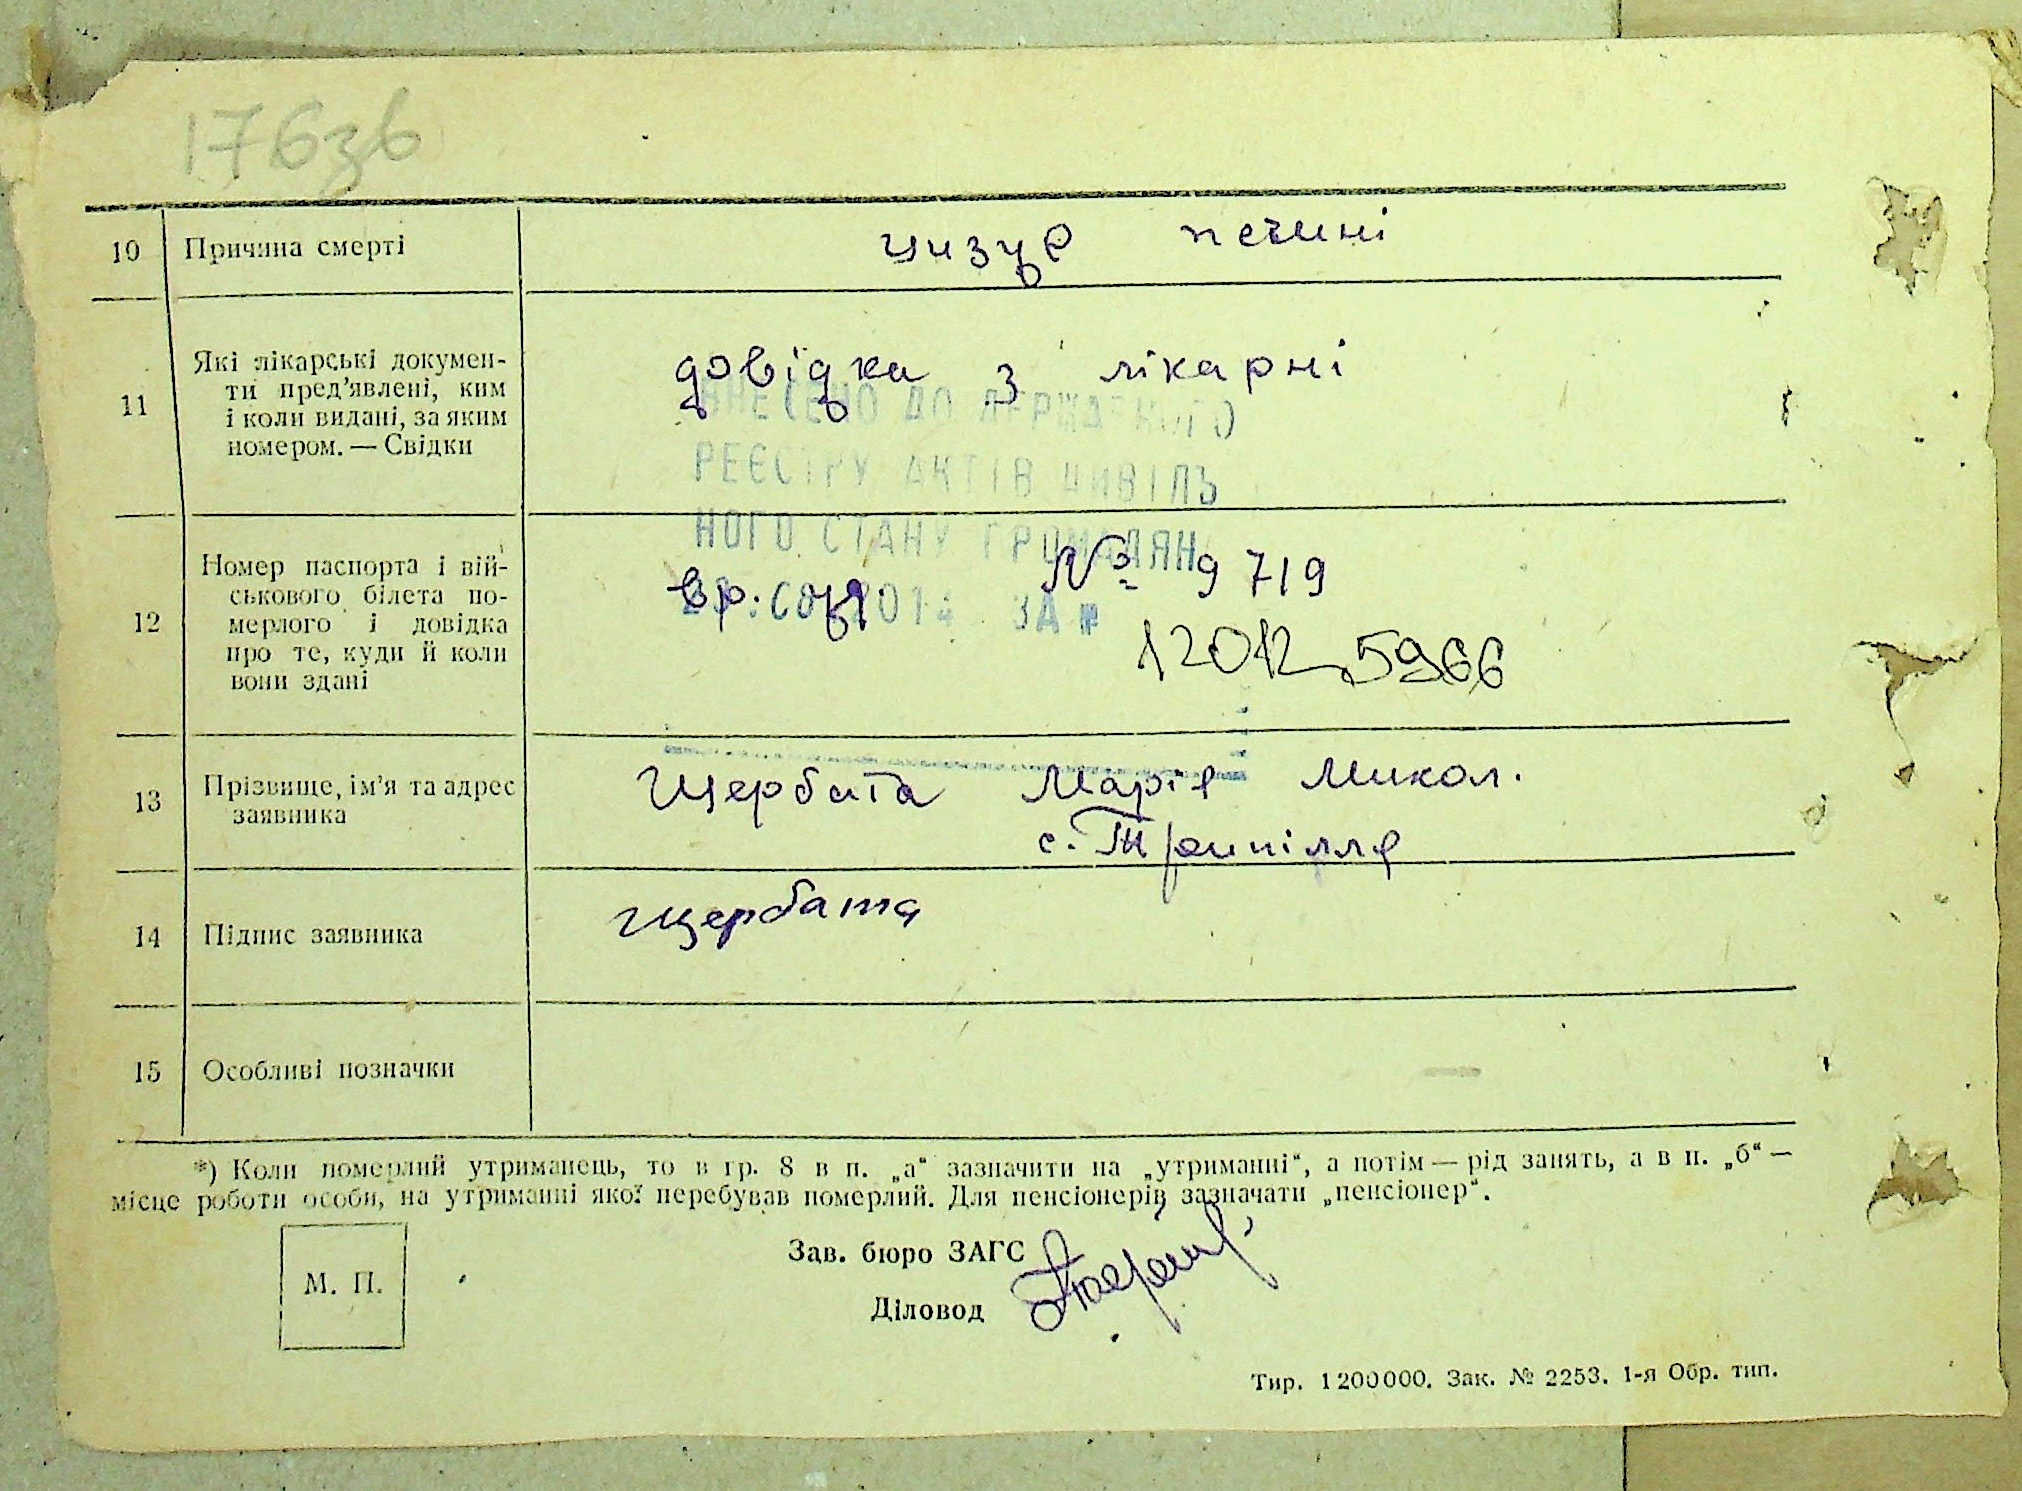 176зв
10 Причина смерті
цизур печині
11 Які лікарські докумен-
ти пред’явлені, ким
і коли видані, за яким
номером. — Свідки
довідка з лікарні
ВНЕСЕНО ДО ДЕРЖАВНОГО
РЕЄСТРУ АКТІВ ЦИВІЛЬ
НОГО СТАНУ ГРОМАДЯН
12 Номер паспорта і вій-
ськового білета по-
мерлого і довідка
про те, куди й коли
вони здані
вр. № 9719
ЗА №
12012 5966
13 Прізвище, ім’я та адрес
заявника
Щербата Марія Микол.
с. Трипілля
14 Підпис заявника
Щербата
15 Особливі позначки
*) Коли померлий утриманець, то в гр. 8 в п. „а“ зазначити на „утриманні“, а потім — рід занять, а в п. „б“ —
місце роботи особи, на утриманні якої перебував померлий. Для пенсіонерів зазначати „пенсіонер“.
М. П.
Зав. бюро ЗАГС
Діловод
Тир. 1200000. Зак. № 2253. 1-я Обр. тип.